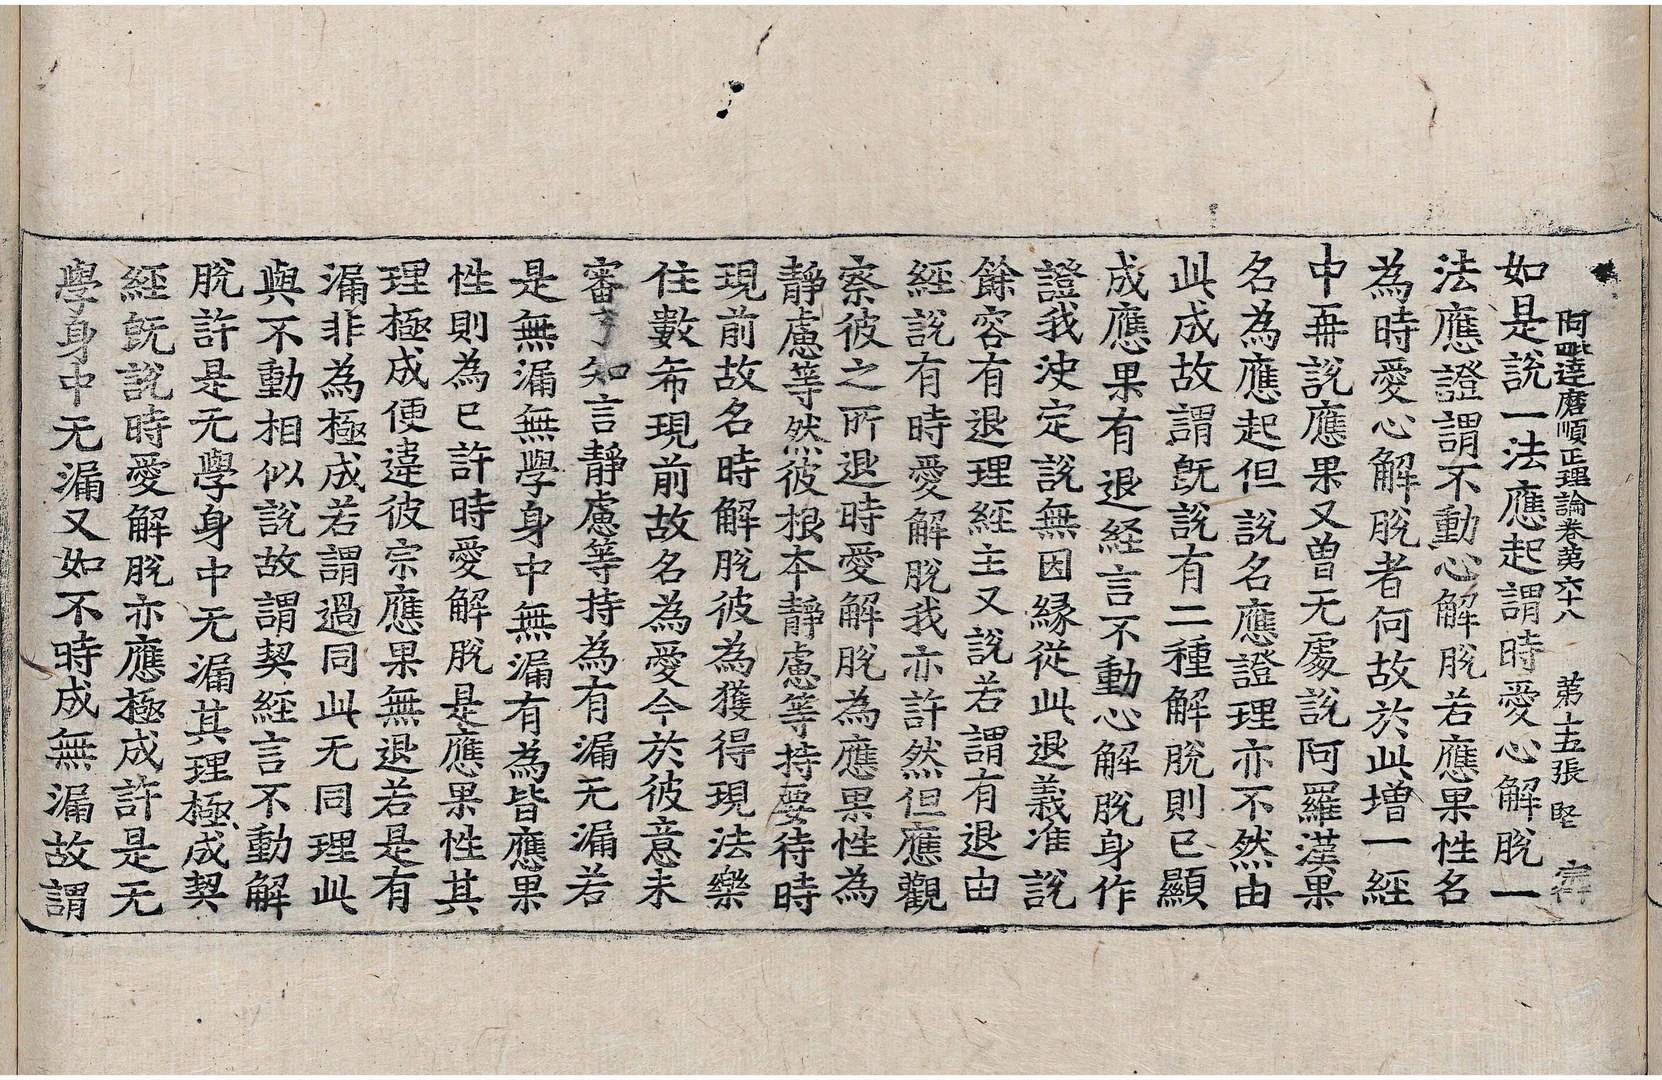 阿毗達磨順正理論卷苐六十八 苐十五張 堅
如是說一法應起謂時愛心解脫一
法應證謂不動心解脫若應果性名
為時愛心解脫者何故於此增一經
中再說應果又曾无處說阿羅漢果
名為應起但說名應證理亦不然由
此成故謂旣說有二種解脫則已顯
成應果有退経言不動心解脫身作
證我決定說無因緣從此退義准說
餘容有退理經主又說若謂有退由
經說有時愛解脫我亦許然但應觀
察彼之所退時愛解脫為應果性為
靜慮等然彼根本靜慮等持要待時
現前故名時解脫彼為獲得現法樂
住數希現前故名為愛今於彼意未
審了知言靜慮等持為有漏无漏若
是無漏無學身中無漏有為皆應果
性則為已許時愛解脫是應果性其
理極成便違彼宗應果無退若是有
漏非為極成若謂過同此无同理此
與不動相似說故謂契經言不動解
脫許是无學身中无漏其理極成契
經旣說時愛解脫亦應極成許是无
學身中无漏又如不時成無漏故謂